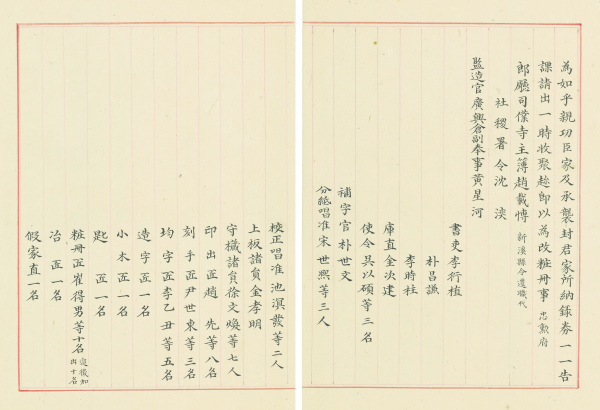 為如乎親功臣家及承襲封君家所納錄券一一告
課請出一時收聚趂即以為改粧冊事 忠勳府
郎廳司僕寺主簿趙載博 新溪縣令遷職代
社稷署令沈 淡
監造官廣興倉副奉事黃星河
書吏李行植
朴昌謙
李時柱
庫直金次建
使令吳以碩等三名
補字官朴世文
分䑓唱准宋世熙等三人
校正唱准池溟發等二人
上板諸員金孝明
守欌諸員徐文煥等七人
印出匠趙 先等八名
刻手匠尹世東等三名
均字匠李乙丑等五名
造字匠一名
小木匠一名
匙匠一名
粧冊匠崔得男等十名 追後加出十名
冶匠一名
假家直一名